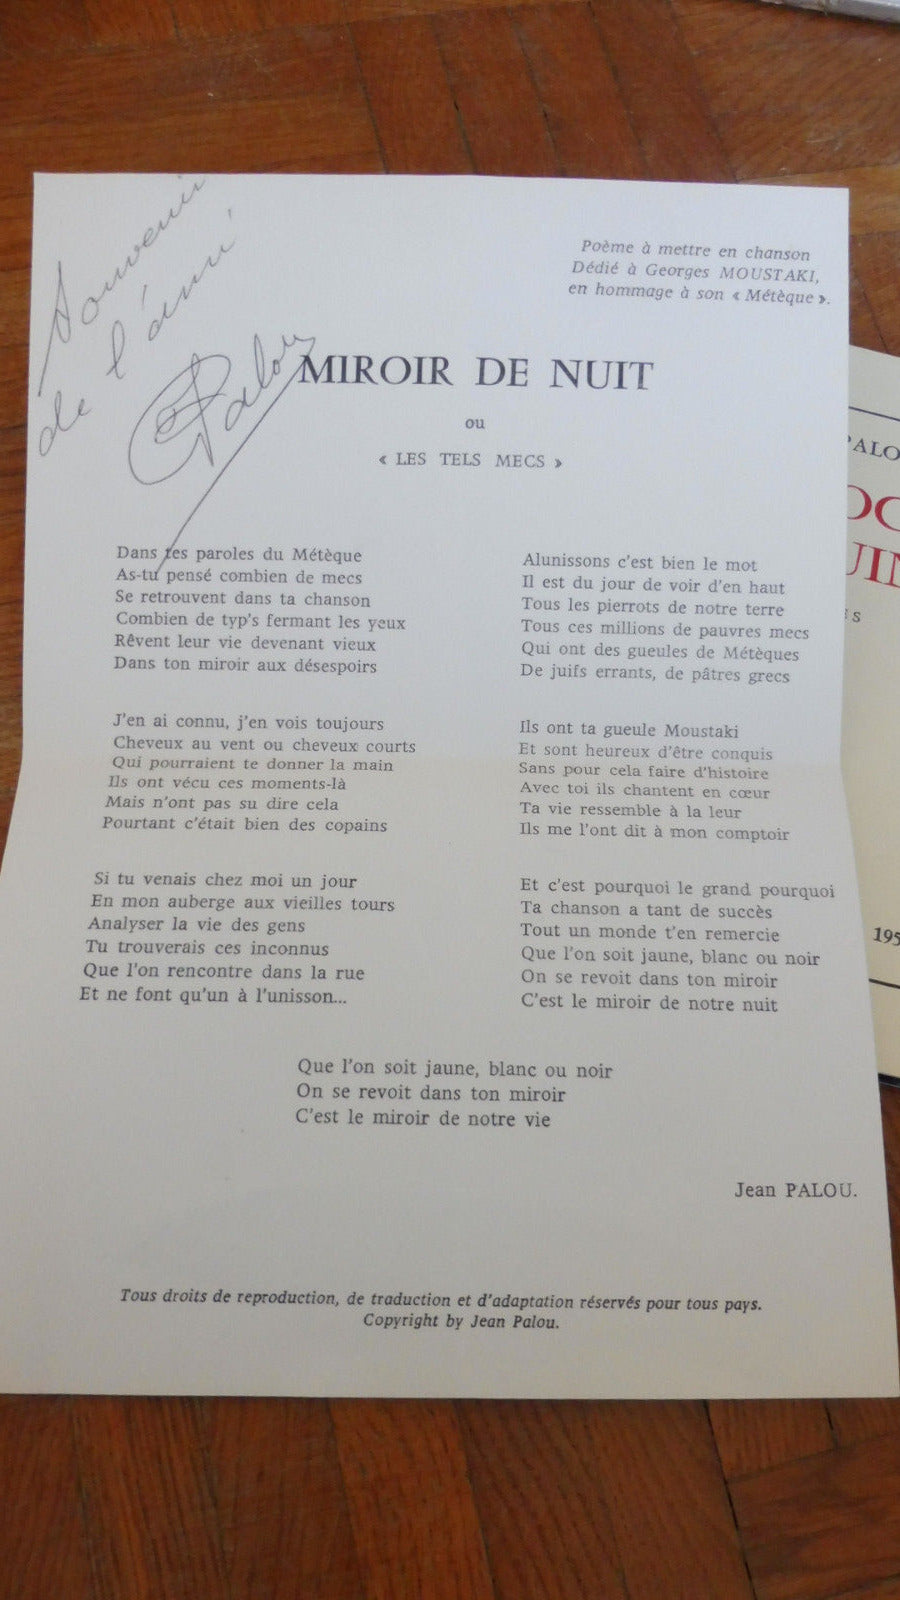 Souvenir
de l'ami
Palou
Poème à mettre en chanson
Dédié à Georges MOUSTAKI,
en hommage à son « Métèque ».
MIROIR DE NUIT
ou
« LES TELS MECS »
Dans tes paroles du Métèque
As-tu pensé combien de mecs
Se retrouvent dans ta chanson
Combien de typ's fermant les yeux
Rêvent leur vie devenant vieux
Dans ton miroir aux désespoirs
J'en ai connu, j'en vois toujours
Cheveux au vent ou cheveux courts
Qui pourraient te donner la main
Ils ont vécu ces moments-là
Mais n'ont pas su dire cela
Pourtant c'était bien des copains
Si tu venais chez moi un jour
En mon auberge aux vieilles tours
Analyser la vie des gens
Tu trouverais ces inconnus
Que l'on rencontre dans la rue
Et ne font qu'un à l'unisson...
Alunissons c'est bien le mot
Il est du jour de voir d'en haut
Tous les pierrots de notre terre
Tous ces millions de pauvres mecs
Qui ont des gueules de Métèques
De juifs errants, de pâtres grecs
Ils ont ta gueule Moustaki
Et sont heureux d'être conquis
Sans pour cela faire d'histoire
Avec toi ils chantent en cœur
Ta vie ressemble à la leur
Ils me l'ont dit à mon comptoir
Et c'est pourquoi le grand pourquoi
Ta chanson a tant de succès
Tout un monde t'en remercie
Que l'on soit jaune, blanc ou noir
On se revoit dans ton miroir
C'est le miroir de notre nuit
Que l'on soit jaune, blanc ou noir
On se revoit dans ton miroir
C'est le miroir de notre vie
Jean PALOU.
Tous droits de reproduction, de traduction et d'adaptation réservés pour tous pays.
Copyright by Jean Palou.
PALO
195